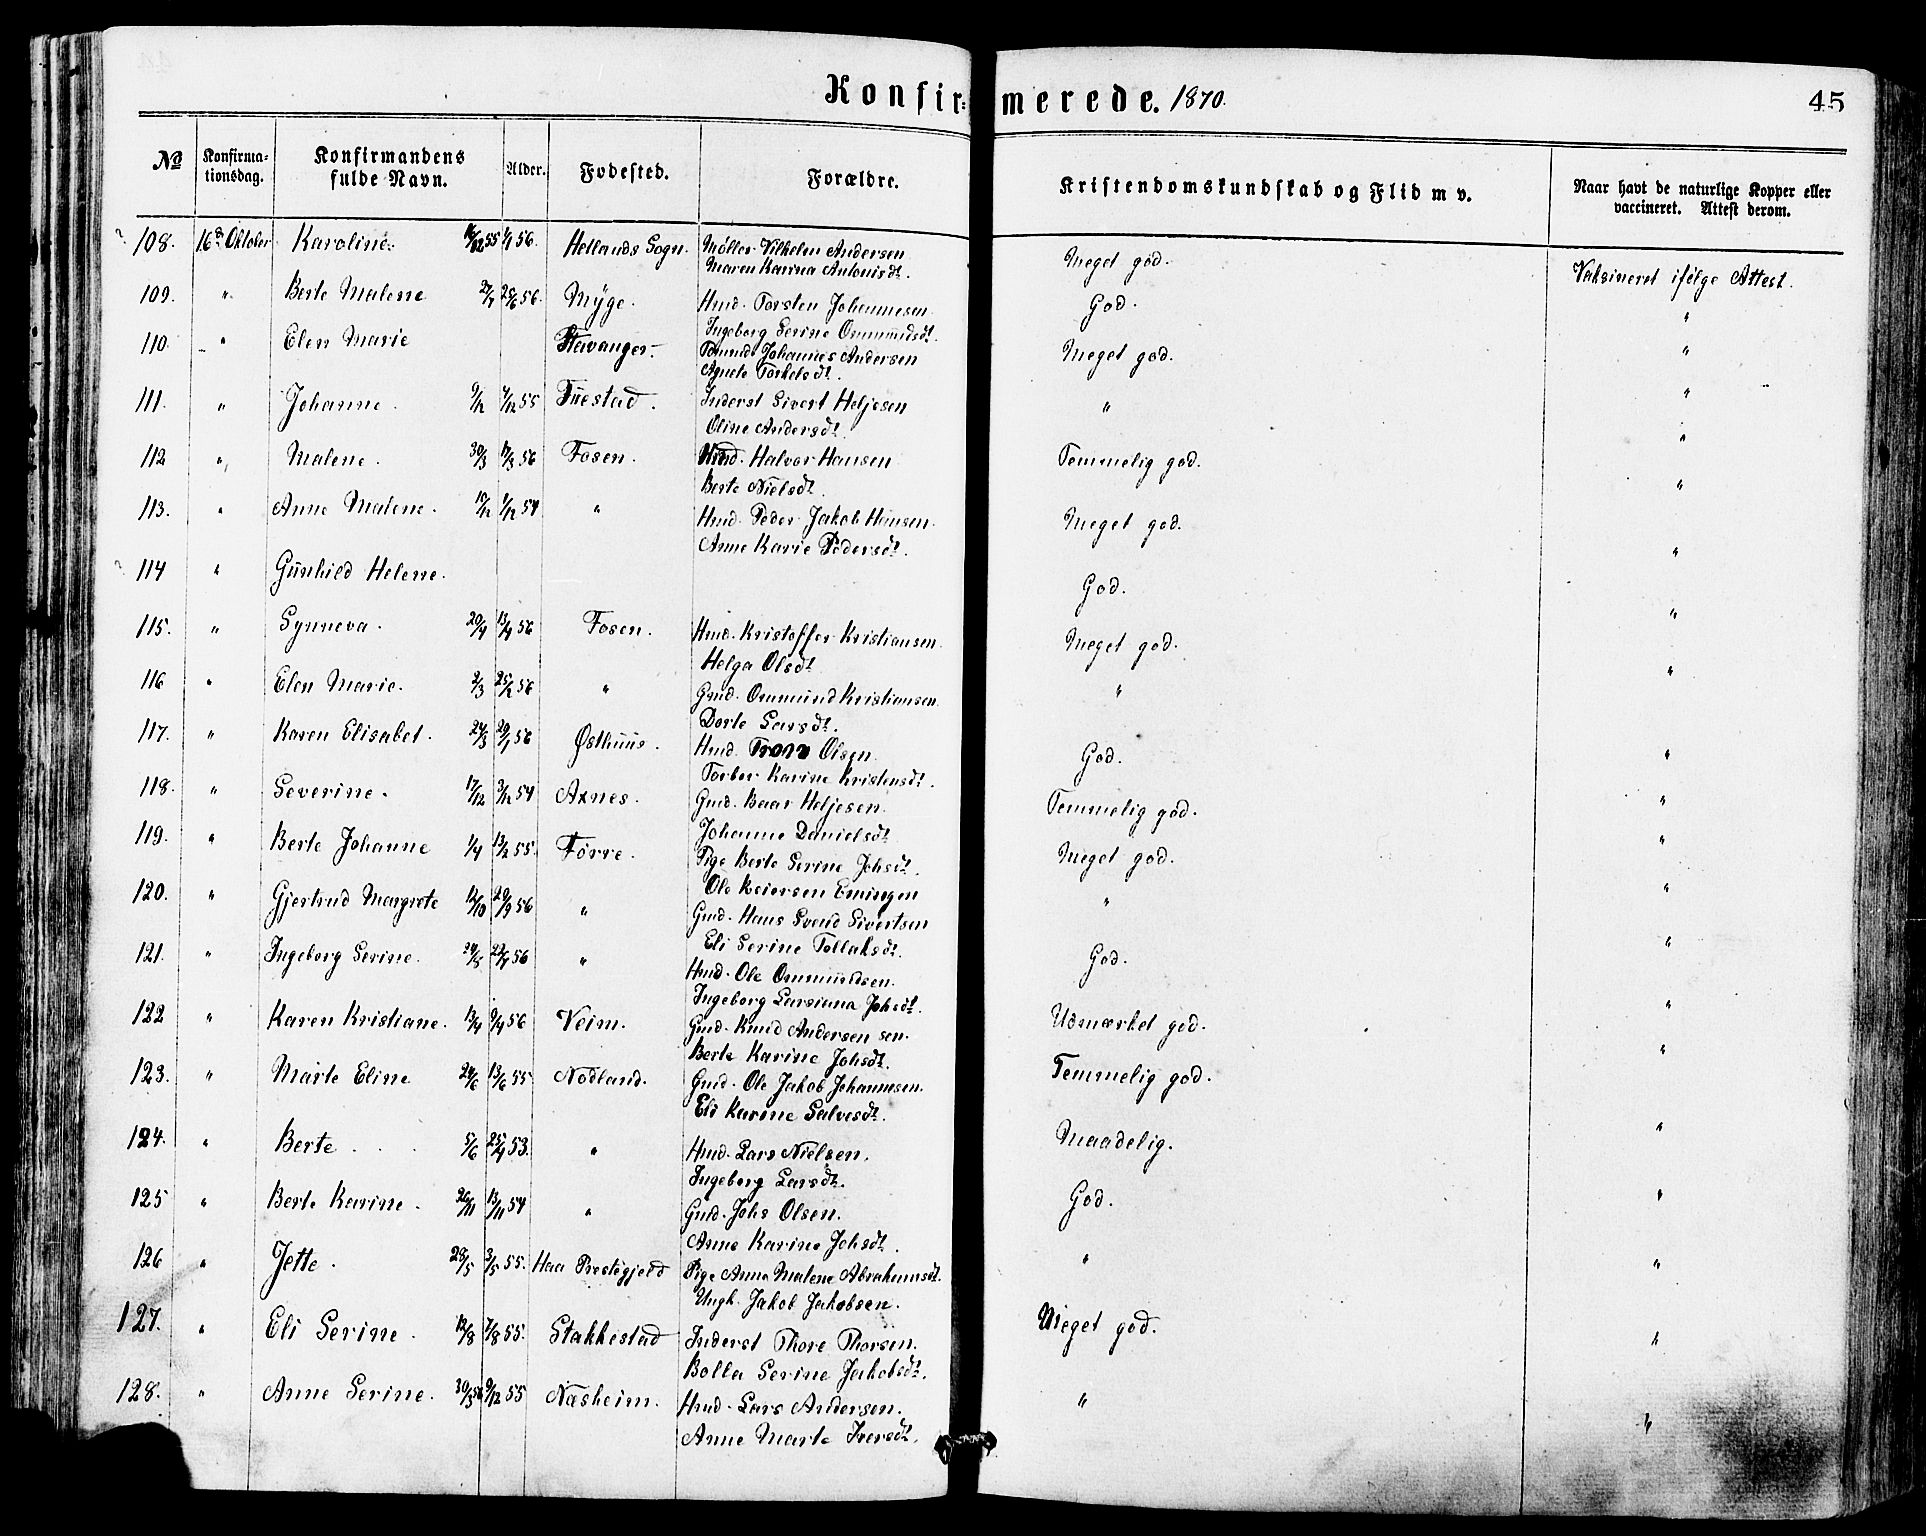 Konfirmerede. 1870.
45
No Konfirmationsdag. Konfirmandens fulde Navn. Alder. Fodested. Forældre. Kristendomskundskab og Flid m v. Naar havt de naturlige Kopper eller vaccineret. Attest derom.
108. 16de Oktober Karoline. 16/12 55 1/1 56. Hetlands Sogn. Møller Vilhelm Andersen Meget god. Vaksineret ifølge Attest.
Maren Karina Antonisdt.
109. " Berte Malene 27/7 25/6 56. Myge. Hmd. Torsten Johannesen God. "
Ingeborg Serine Ommundsdt.
110. " Elen Marie Stavanger. Johannes Andersen Meget god. "
Agnete Torkelsdt.
111. " Johanne. 9/12 4/12 55 Tuestad. Inderst Sivert Heljesen " "
Oline Andersdt.
112 " Malene. 30/3 17/3 56 Fosen. Hmd. Halvor Hansen Temmelig god. "
Berte Nielsdt.
113. " Anne Malene. 17/12 1/12 54 " Hmd. Peder Jakob Hansen. Meget god. "
Anne Karie Pedersdt.
114 " Gunhild Helene. God. "
115. " Synneva. 20/4 13/4 56 Fosen. Hmd. Kristoffer Kristiansen. Meget god. "
Helga Olsdt.
116 " Elen Marie. 2/3 25/2 56 " Gmd. Ommund Kristiansen. " "
Dorte Larsdt.
117. " Karen Elisabet. 24/3 20/1 56 Østhuus. Hmd. Olsen God. "
Torbor Karine Kristensdt.
118. " Severine. 17/12 3/12 54 Axnes. Gmd. Baar Heljesen. Temmelig god. "
Johanne Danielsdt.
119. " Berte Johanne 1/4 13/2 55. Førre. Pige Berte Serine Johsdt. Meget god. "
Ole Reiersen
120. " Gjertrud Margrete 12/10 20/9 56 " Gmd. Hans Svend Sivertsen " "
Eli Serine Tollaksdt.
121. " Ingeborg Serine. 24/5 22/5 56 " Hmd. Ole Ommundsen. God. "
Ingeborg Larsiana Johsdt.
122 " Karen Kristiane. 13/4 9/4 56 Veim. Gmd. Knud Andersen sen. Udmærket god. "
Berte Karine Johsdt.
123. " Marte Eline 24/6 13/6 55 Nodland. Gmd. Ole Jakob Johannesen. Temmelig god. "
Eli Karine Salvesdt.
124. " Berte 5/6 25/4 53. " Hmd. Lars Nielsen. Maadelig. "
Ingeborg Larsdt.
125 " Berte Karine. 26/11 13/11 54 " Gmd. Johs Olsen. God. "
Anne Karine Johsdt.
126 " Jette. 28/5 3/5 55. Haa Prestegjeld Pige Anna Malene Abrahamsdt. " "
Ungk. Jakob Jakobsen.
127. " Eli Serine. 12/8 7/8 55. Stakkestad Inderst Thore Thorsen. Meget god. "
Bolla Serine Jakobsdt.
128. " Anne Serine. 30/3 56 9/12 55 Næsheim. Hmd. Lars Andersen. " "
Anne Marte Iversdt.